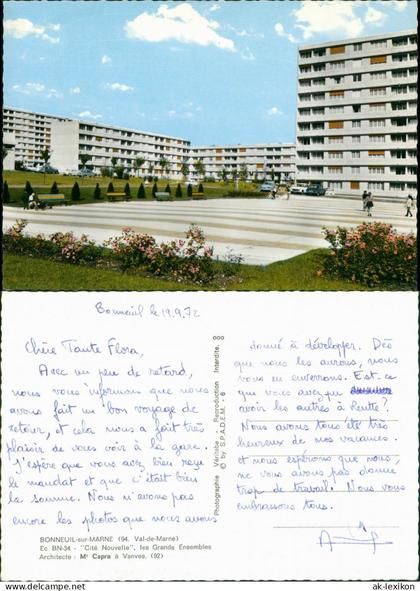 Bonneuil le 19.9.72
Chère Tante Flora,
Avec un peu de retard,
nous vous informons que nous
avons fait un bon voyage de
retour, et cela nous a fait très
plaisir de vous voir à la gare.
J'espère que vous avez bien reçu
le mandat et que c'était bien
la somme. Nous n'avons pas
encore les photos que nous avons
BONNEUIL-sur-MARNE (94. Val-de-Marne)
Ec BN-34 - "Cité Nouvelle", les Grands Ensembles
Architecte : Mr Capra à Vanves. (92)
Photographie Véritable - Reproduction Interdite.
© by S.P.A.D.E.M. - 6
donné à développer. Dès
que nous les aurons, nous
vous en enverrons. Est-ce
que vous avez pu
avoir les autres à
Nous avons tous été très
heureux de nos vacances.
et nous espérons que nous
ne vous avons pas donné
trop de travail. Nous vous
embrassons tous.
© www.ak-lexikon.com